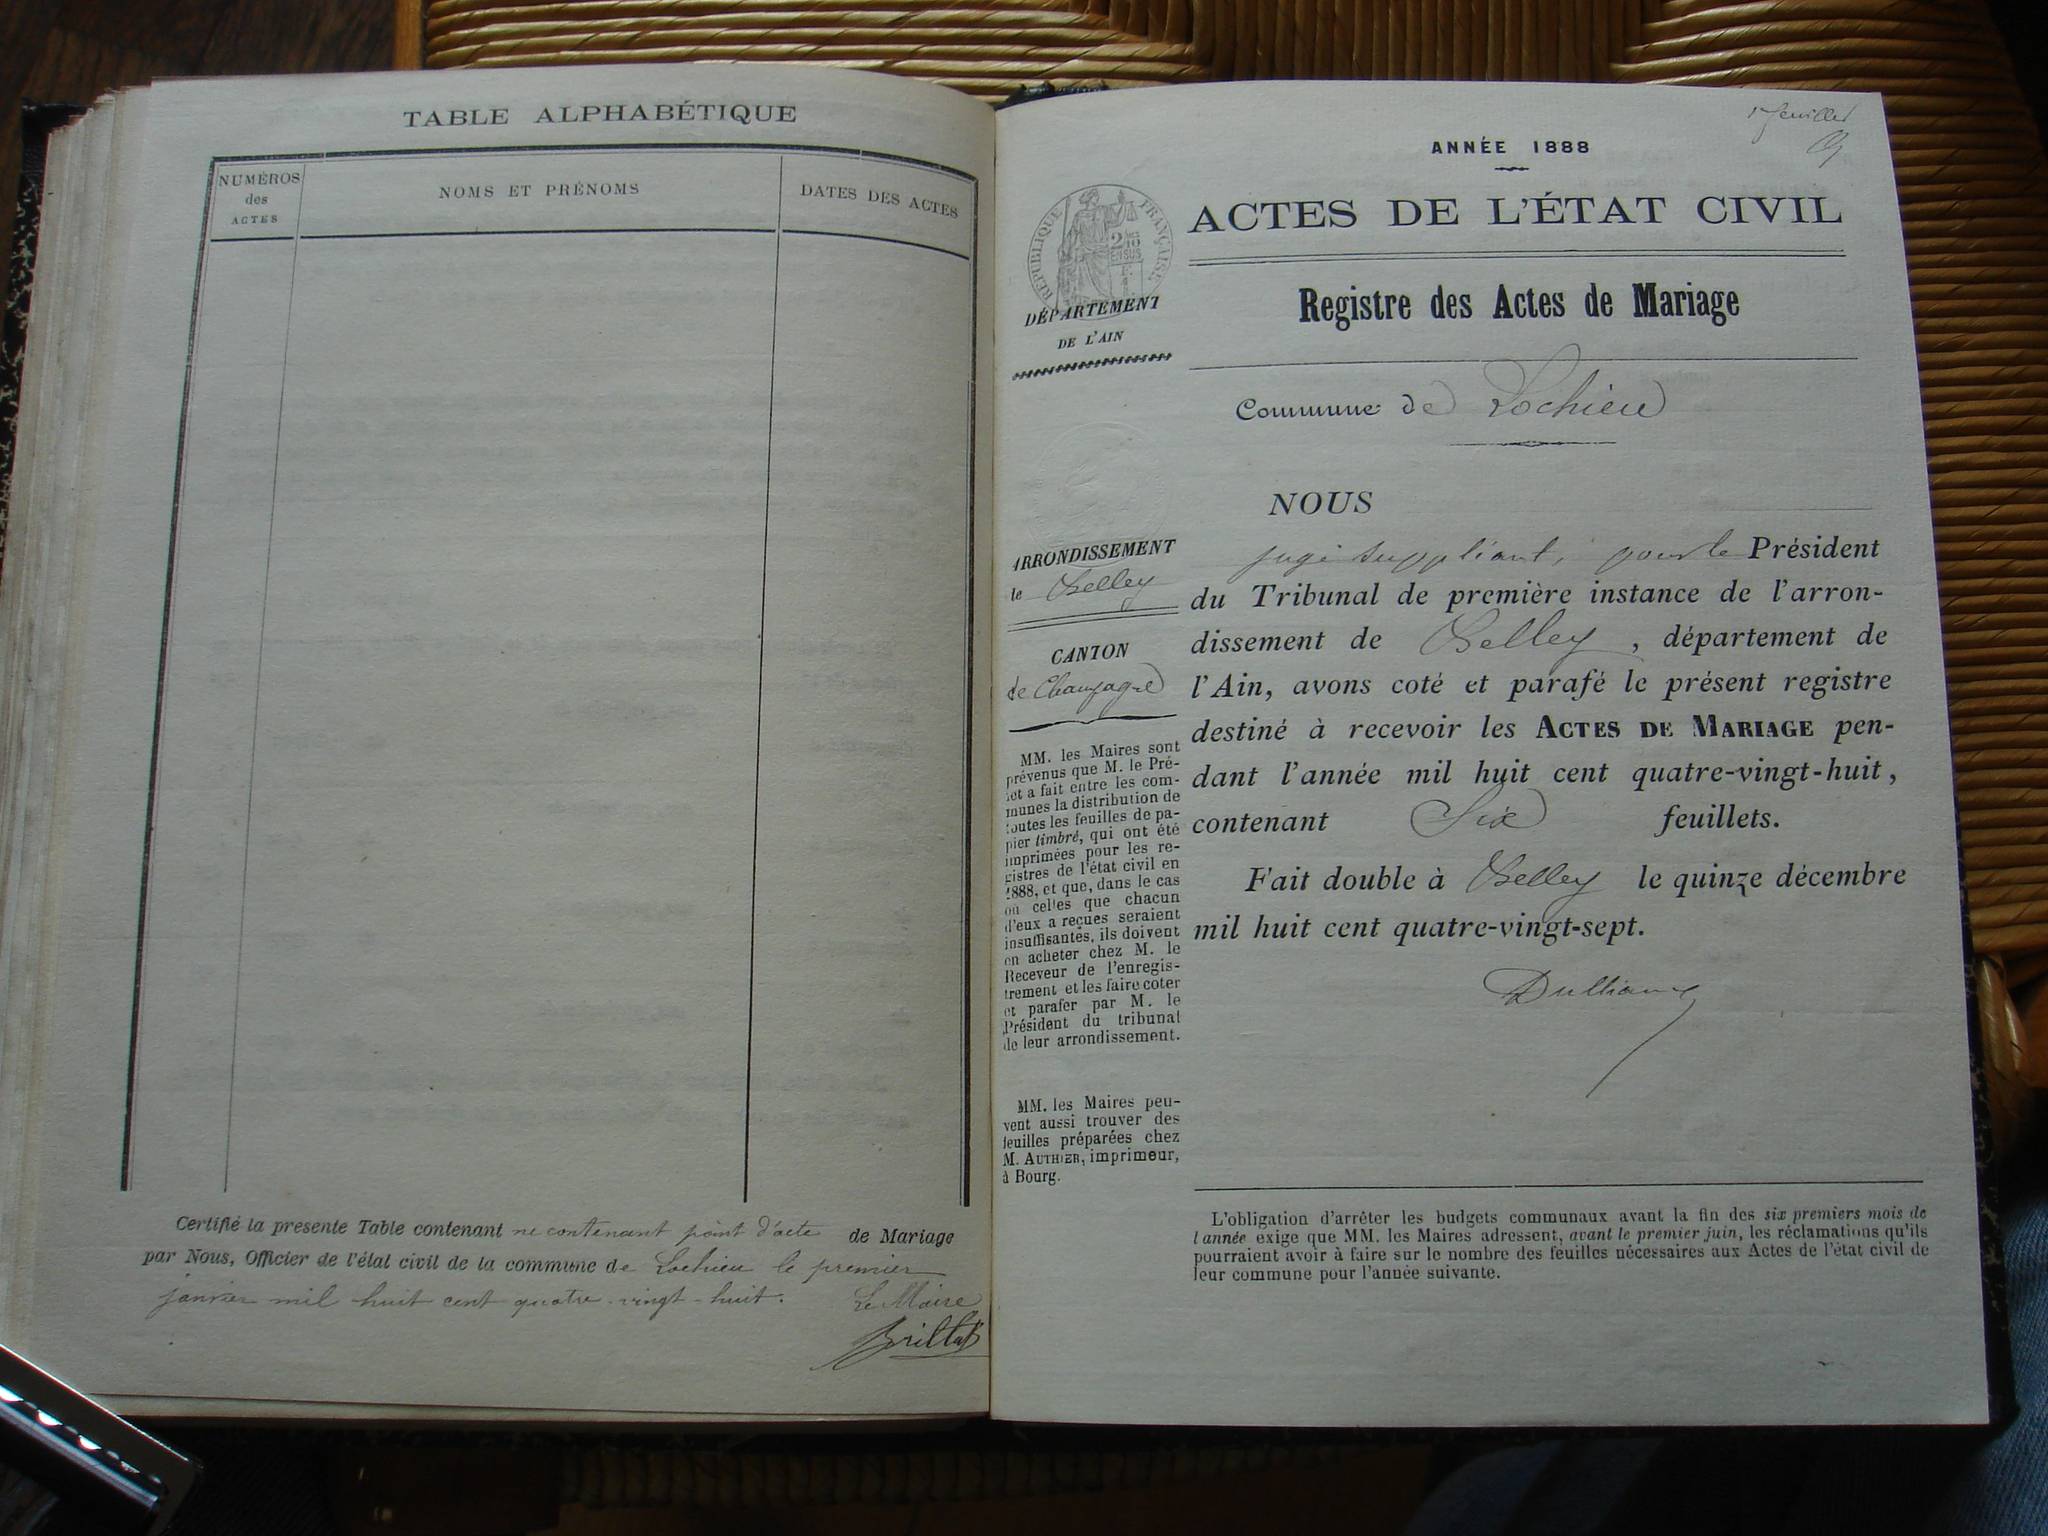 TABLE ALPHABÉTIQUE
NUMÉROS
des
ACTES
NOMS ET PRÉNOMS
DATES DES ACTES
Certifié la presente Table contenant ne contenant point d'acte de Mariage
par Nous, Officier de l'état civil de la commune de Lochieu le premier
janvier mil huit cent quatre-vingt-huit. Le Maire
Brillat
1er feuillet
ANNÉE 1888
ACTES DE L'ÉTAT CIVIL
RÉPUBLIQUE FRANÇAISE
2/10
EN SUS
DÉPARTEMENT
DE L'AIN
Registre des Actes de Mariage
Commune de Lochieu
ARRONDISSEMENT
de Belley
CANTON
de Champagne
MM. les Maires sont
prévenus que M. le Pré-
fet a fait entre les com-
munes la distribution de
toutes les feuilles de pa-
pier timbré, qui ont été
imprimées pour les re-
gistres de l'état civil en
1888, et que, dans le cas
où celles que chacun
d'eux a reçues seraient
insuffisantes, ils doivent
en acheter chez M. le
Receveur de l'enregis-
trement et les faire coter
et parafer par M. le
Président du tribunal
de leur arrondissement.
MM. les Maires peu-
vent aussi trouver des
feuilles préparées chez
M. AUTHIER, imprimeur,
à Bourg.
NOUS
juge suppléant, pour le Président
du Tribunal de première instance de l'arron-
dissement de Belley, département de
l'Ain, avons coté et parafé le présent registre
destiné à recevoir les ACTES DE MARIAGE pen-
dant l'année mil huit cent quatre-vingt-huit,
contenant Six feuillets.
Fait double à Belley le quinze décembre
mil huit cent quatre-vingt-sept.
L'obligation d'arrêter les budgets communaux avant la fin des six premiers mois de
l'année exige que MM. les Maires adressent, avant le premier juin, les réclamations qu'ils
pourraient avoir à faire sur le nombre des feuilles nécessaires aux Actes de l'état civil de
leur commune pour l'année suivante.